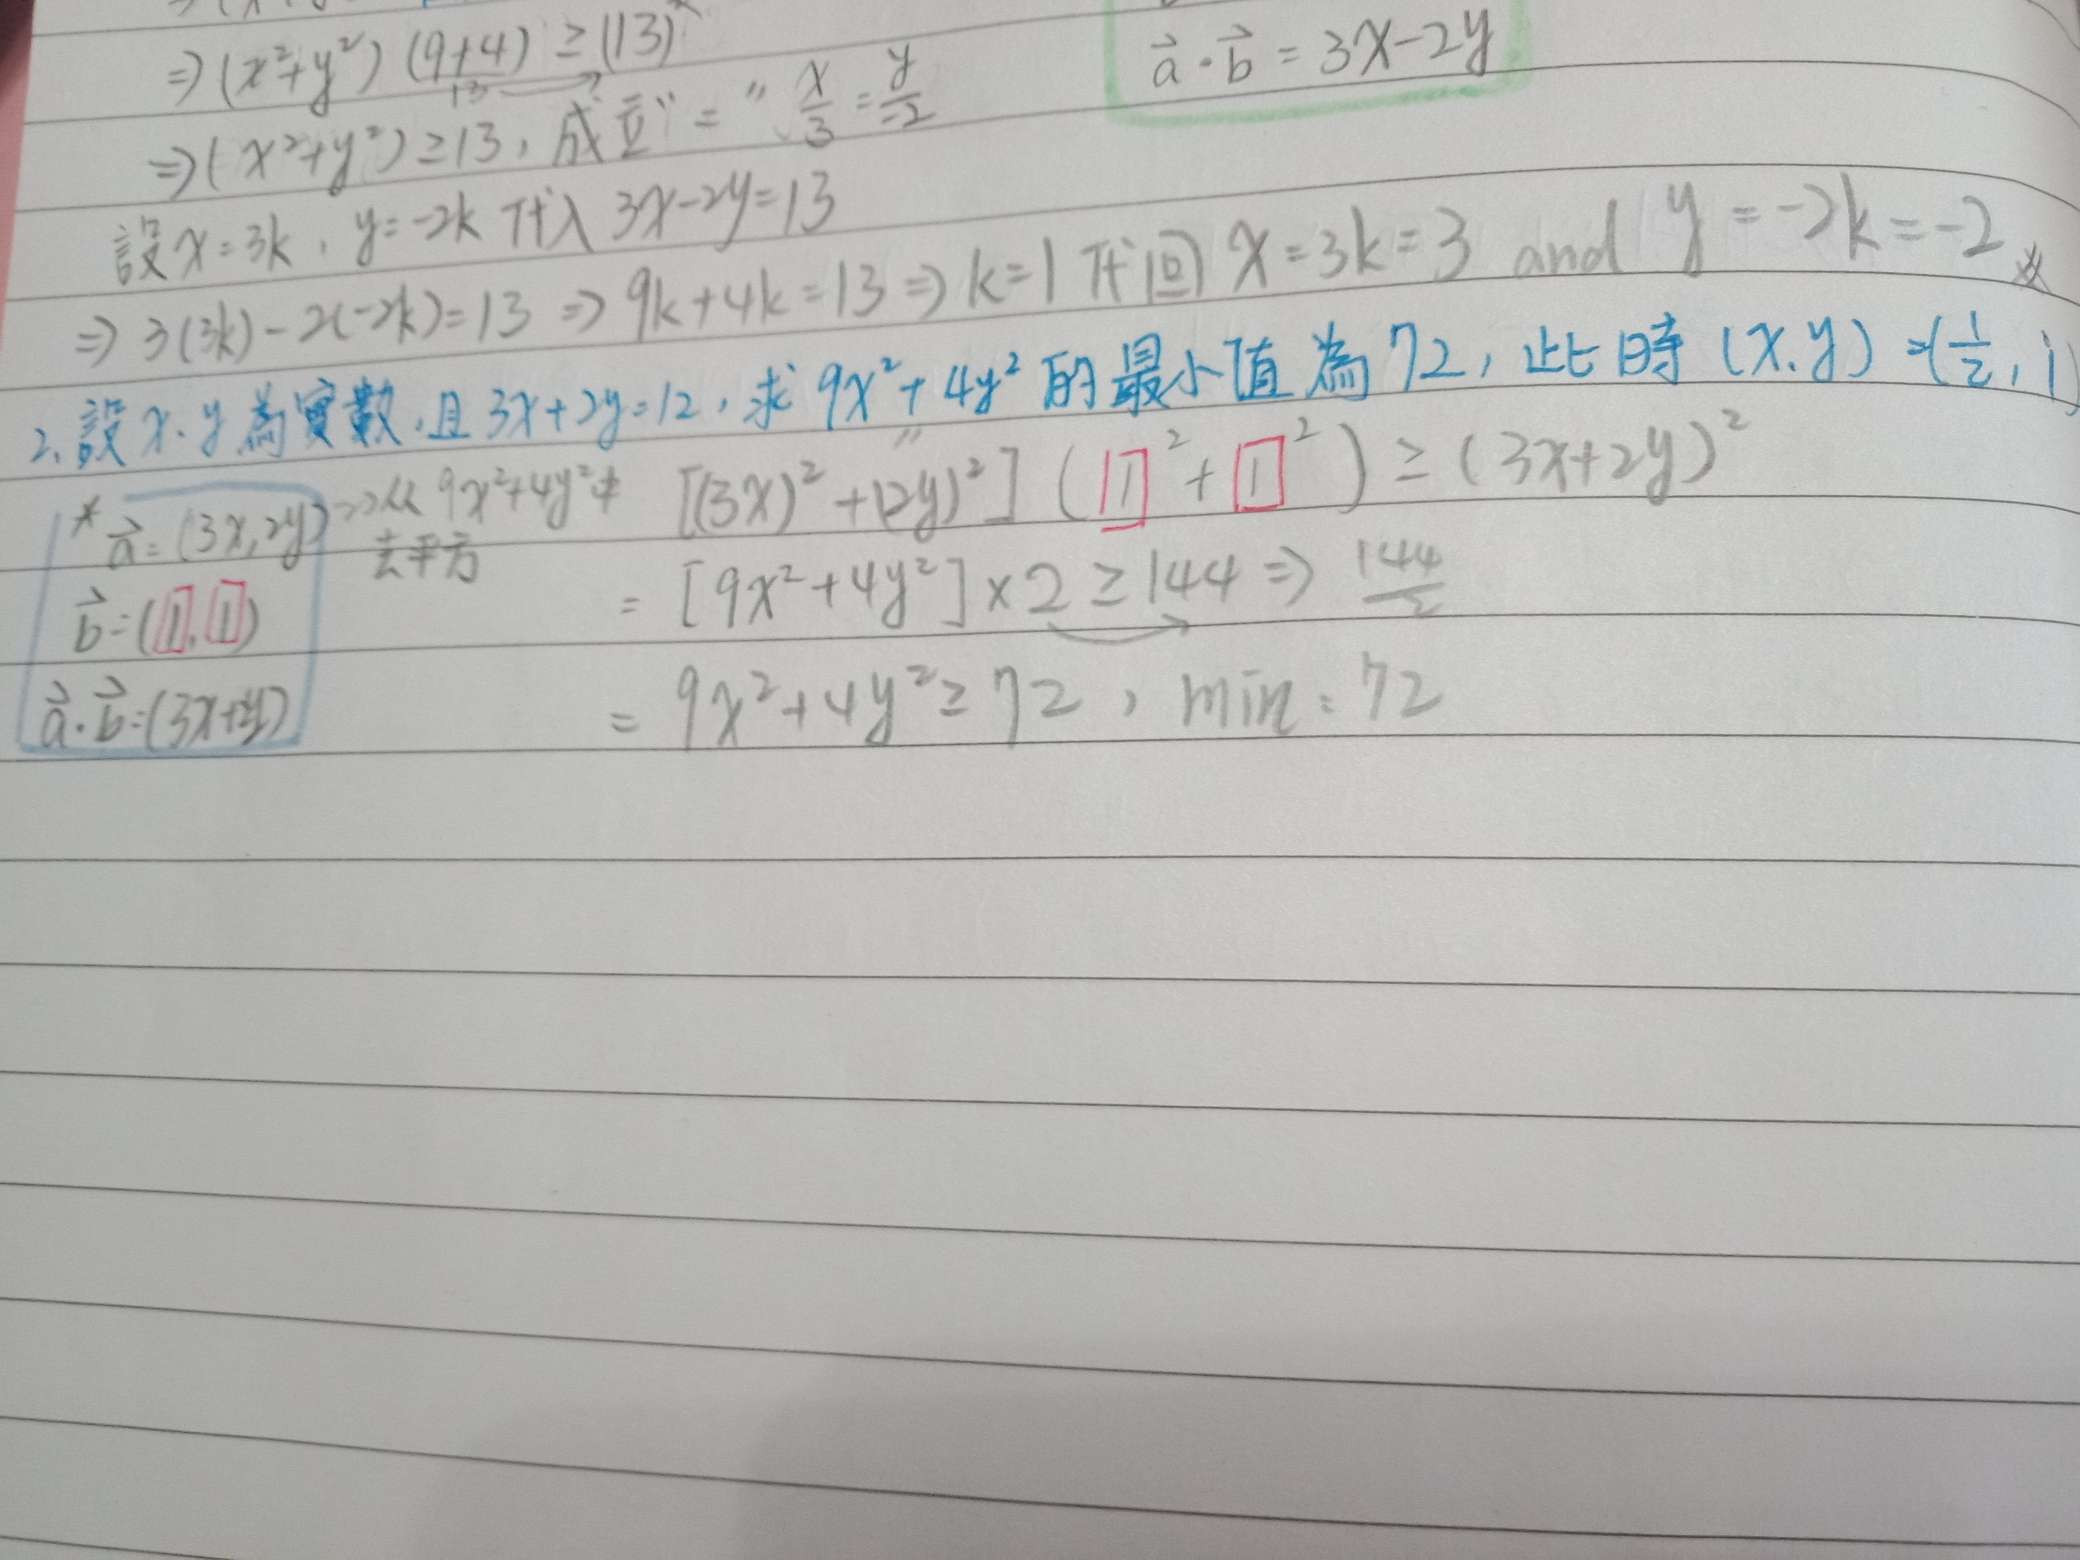 ⇒(x²+y²)(9+4)≥(13)²
13
a⃗·b⃗=3x-2y
⇒(x²+y²)≥13,成立"="x/3=y/-2
設x=3k,y=-2k代入3x-2y=13
⇒3(3k)-2(-2k)=13⇒9k+4k=13⇒k=1代回x=3k=3 and y=-2k=-2
2.設x.y為實數,且3x+2y=12,求9x²+4y²的最小值為72,此時(x.y)=(1/2,1)
*a⃗=(3x,2y)→從9x²+4y²中去平方
[(3x)²+(2y)²](1²+1²)≥(3x+2y)²
b⃗=(1,1)
=[9x²+4y²]×2≥144⇒144/2
a⃗·b⃗=(3x+2y)
=9x²+4y²≥72,min:72